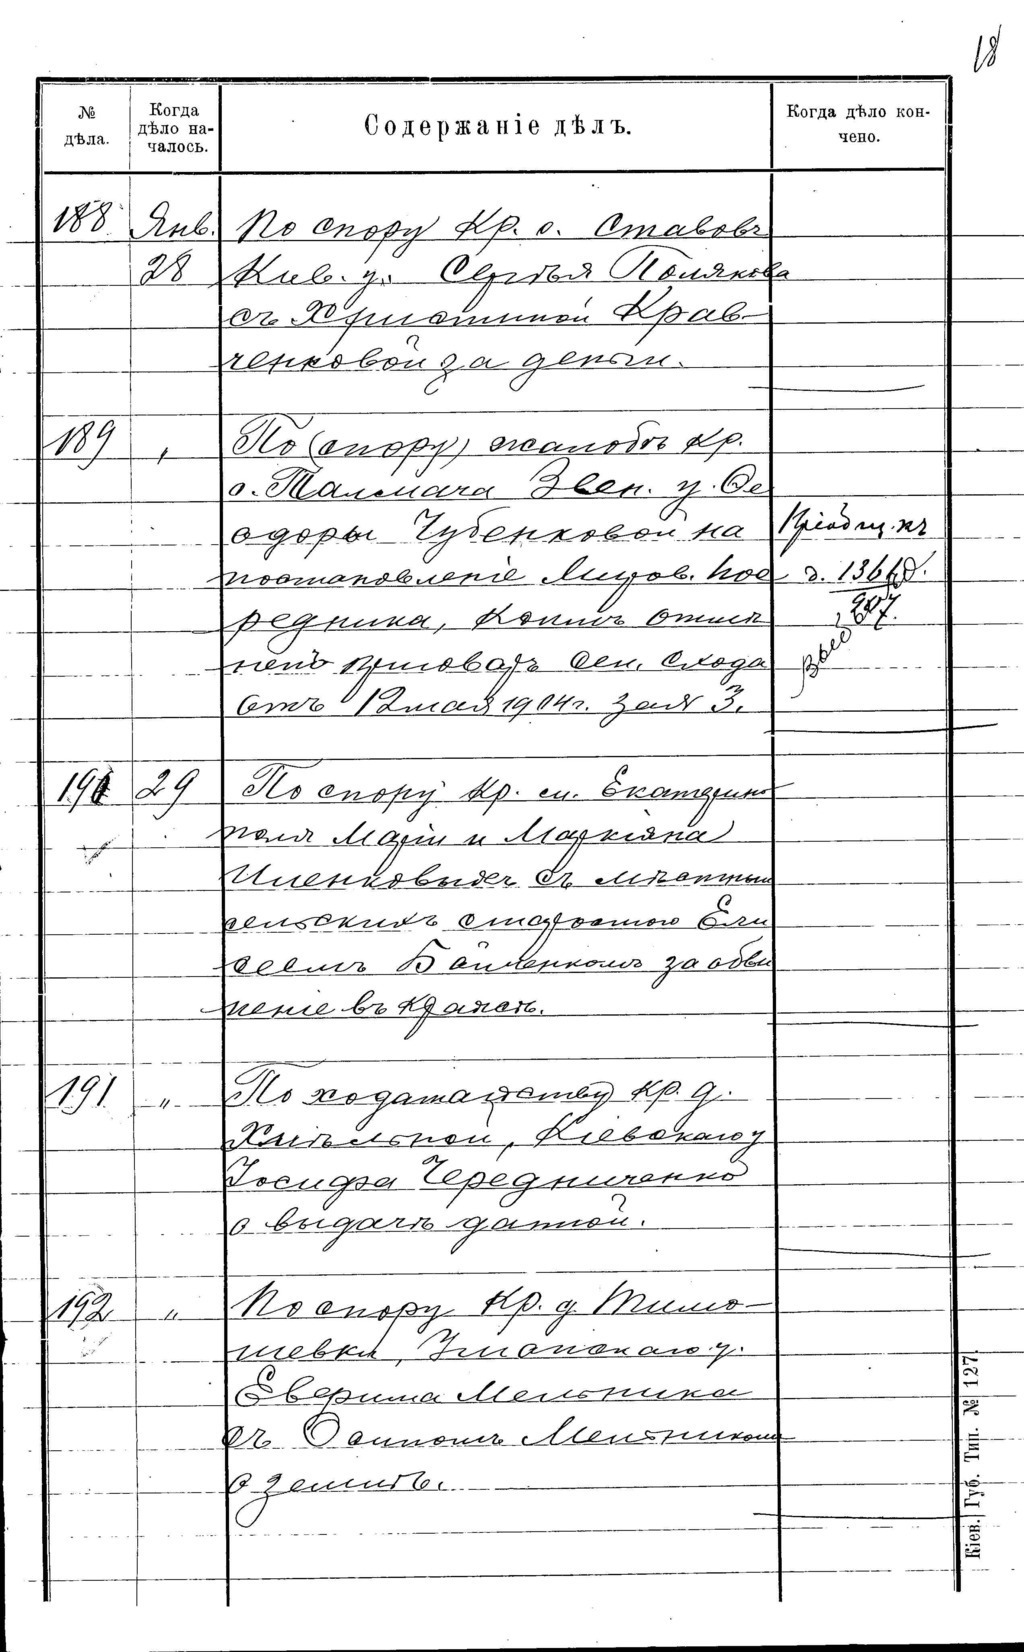 18
№ дѣла.
Когда дѣло на-
чалось.
Содержаніе дѣлъ.
Когда дѣло кон-
чено.
188 Янв. По спору Кр. с. Ставовъ
28 Кіев. у. Сергѣя Полякова
съ Христиной Крав-
ченковой за деньги.
189 " По (спору) жалобѣ кр.
с. Талмача Звен. у. Ѳе
одоры Чубенковой на
постановленіе Миров. Пос
редника, коимъ отмѣ
ненъ приговоръ сел. схода
отъ 12 мая 1904 г. за № 3.
Пріобщ. къ
д. 136
190 29 По спору Кр. м. Екатерино
поля Маріи и Маркіяна
Иленковыхъ съ мѣстнымъ
сельскимъ старостою Ели
сеемъ Бойченкомъ за обви
неніе въ кражѣ.
191 " По ходатайству кр. д.
Хмѣльной, Кіевскаго у
Іосифа Чередниченко
о выдачѣ данной.
192 " По спору Кр. д. Тимо-
шевки, Уманскаго у.
Евфима Мельника
съ Осипомъ Мельникомъ
о землѣ.
Кіев. Губ. Тип. № 127.